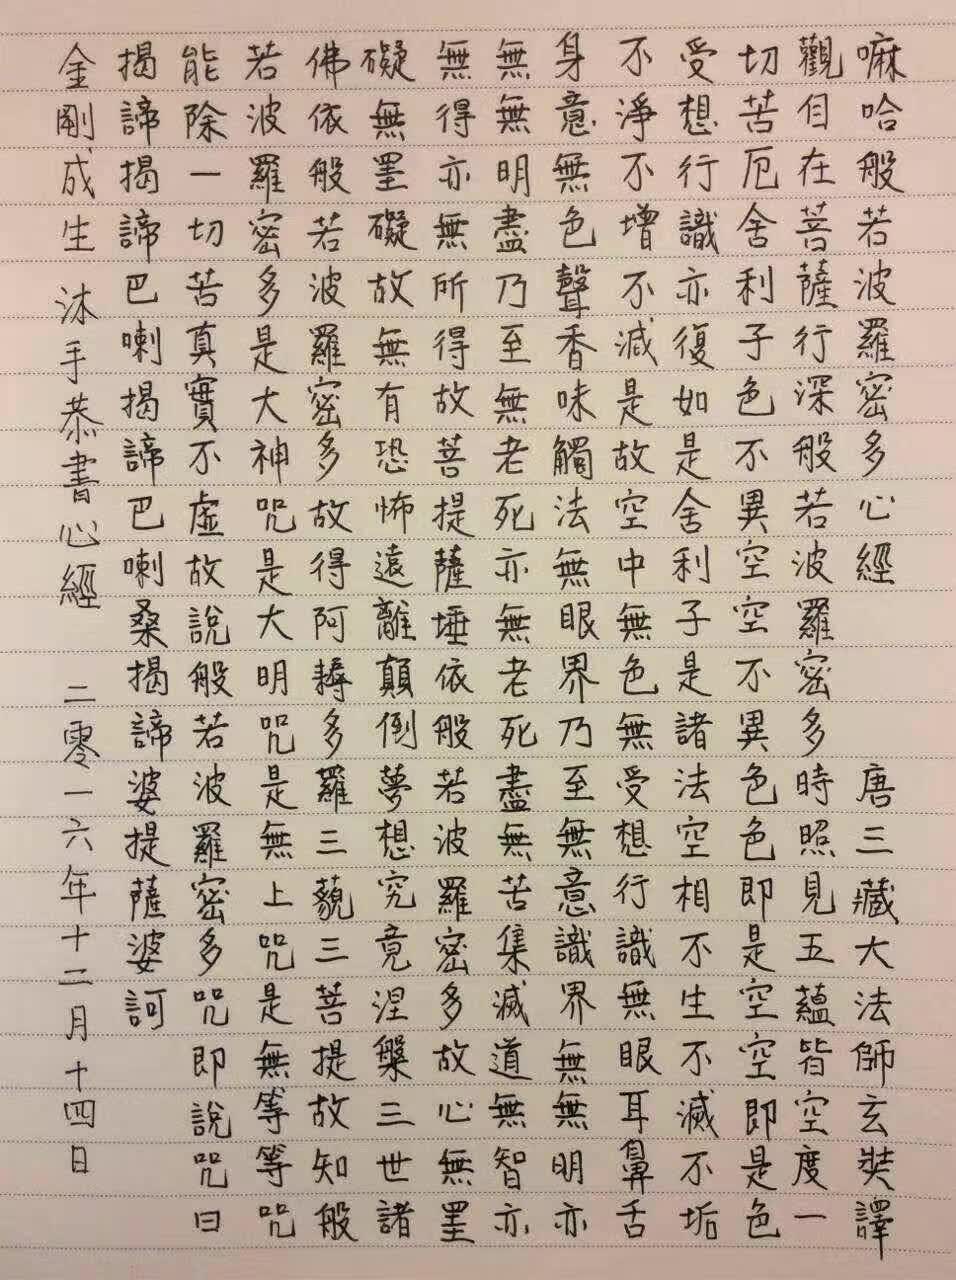 嘛哈般若波羅密多心經 唐三藏大法師玄奘譯
觀自在菩薩行深般若波羅密多時照見五蘊皆空度一
切苦厄舍利子色不異空空不異色色即是空空即是色
受想行識亦復如是舍利子是諸法空相不生不滅不垢
不淨不增不減是故空中無色無受想行識無眼耳鼻舌
身意無色聲香味觸法無眼界乃至無意識界無無明亦
無無明盡乃至無老死亦無老死盡無苦集滅道無智亦
無得亦無所得故菩提薩埵依般若波羅密多故心無罣
礙無罣礙故無有恐怖遠離顛倒夢想究竟涅槃三世諸
佛依般若波羅密多故得阿耨多羅三藐三菩提故知般
若波羅密多是大神咒是大明咒是無上咒是無等等咒
能除一切苦真實不虛故說般若波羅密多咒即說咒曰
揭諦揭諦巴喇揭諦巴喇桑揭諦婆提薩婆訶
金剛成生 沐手恭書心經 二零一六年十二月十四日